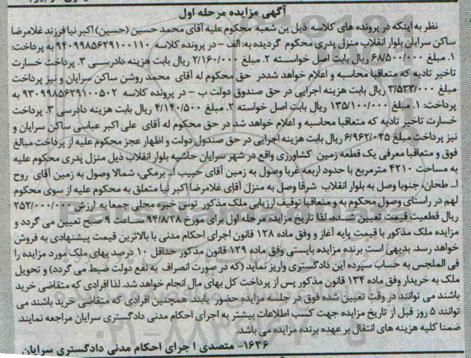 آگهی مزایده مرحله اول
نظر به اینکه در پرونده های کلاسه ذیل بن شعبه محکوم علیه آقای محمد حسین (حسین) اکبر نیا فرزند غلامرضا
ساکن سرایان بلوار انقلاب منزل پدری محکوم گردیده به: الف - در پرونده کلاسه ۹۴۰۹۹۸۵۶۲۹۱۰۰۱۱۰ به پرداخت:
۱. مبلغ ۶۸/۵۰۰/۰۰۰ ریال بابت اصل خواسته ۲. مبلغ ۲/۱۶۰/۰۰۰ ریال بابت هزینه دادرسی ۳. پرداخت خسارت
تاخیر تادیه که متعاقبا محاسبه و اعلام خواهد شد در حق محکوم له آقای محمد روشن ساکن سرایان و نیز پرداخت
مبلغ ۳/۵۳۳/۰۰۰ ریال بابت هزینه اجرایی در حق صندوق دولت ب - در پرونده کلاسه ۹۳۰۹۹۸۵۶۲۹۱۰۰۵۰۲ به
پرداخت: ۱. مبلغ ۱۳۵/۱۰۰/۰۰۰ ریال بابت اصل خواسته ۲. مبلغ ۴/۱۴۰/۵۰۰ ریال بابت هزینه دادرسی ۳. پرداخت
خسارت تاخیر تادیه که متعاقبا محاسبه و اعلام خواهد شد در حق محکوم له آقای علی اکبر عباسی ساکن سرایان و
نیز پرداخت مبلغ ۶/۹۶۲/۰۲۵ ریال بابت هزینه اجرایی در حق صندوق دولت و اظهار عجز محکوم علیه از پرداخت مبالغ
فوق و متعاقبا معرفی یک قطعه زمین کشاورزی واقع در شهر سرایان حاشیه بلوار انقلاب ذیل منزل پدری محکوم علیه
به مساحت ۴۲۱۰ مترمربع با حدود اربعه غربا وصول به زمین آقای حبیب ا.. برمکی، شمالا وصول به زمین آقای روح
ا.. طحان، جنوبا وصل به بلوار انقلاب شرقا وصل به منزل آقای غلامرضا اکبر نیا متعلق به محکوم علیه از سوی محکوم
لهم در راستای وصول محکوم به و متعاقبا توقیف ارزیابی ملک مذکور توس خبره محلی جمعا به ارزش ۲۵۲/۰۰۰/۰۰۰
ریال قطعیت قیمت تعیین شده، لذا تاریخ مزایده مرحله اول برای مورخ ۹۴/۸/۲۸ ساعت ۹ صبح تعیین می گردد و
مزایده ملک مذکور با قیمت پایه آغاز و وفق ماده ۱۲۸ قانون اجرای احکام مدنی با بالاترین قیمت پیشنهادی به فروش
خواهد رسد. بدیهی است برنده مزایده بایستی وفق ماده ۱۲۹ قانون مذکور حداقل ۱۰ درصد بهای ملک مورد مزایده را
فی المجلس به حساب سپرده این دادگستری واریز نماید (که در صورت انصراف به نفع دولت ضبط می گردد) و تحویل
ملک به خریدار وفق ماده ۱۳۴ قانون مذکور پس از پرداخت کل بهای مال انجام خواهد شد. لذا افرادی که متقاضی خرید
باشند می توانند در وقت تعیین شده فوق در جلسه مزایده حضور یابند. همچنین افرادی که متقاضی خرید باشند می
توانند ۵ روز قبل از تاریخ مزایده جهت کسب اطلاعات بیشتر به اجرای احکام مدنی دادگستری سرایان مراجعه نمایند.
ضمنا کلیه هزینه های انتقال بر عهده برنده مزایده می باشد.
۱۶۳۶- متصدی اجرای احکام مدنی دادگستری سرایان